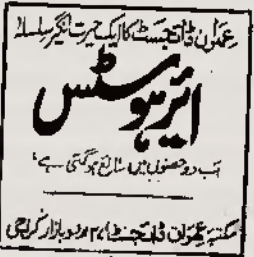 عمران ڈائجسٹ کا ایک حیرت انگیز سلسلہ
ائیر ہوسٹس
اب دو حصوں میں شائع ہو گئی ہے
مکتبہ عمران ڈائجسٹ، ۳۷ اردو بازار کراچی